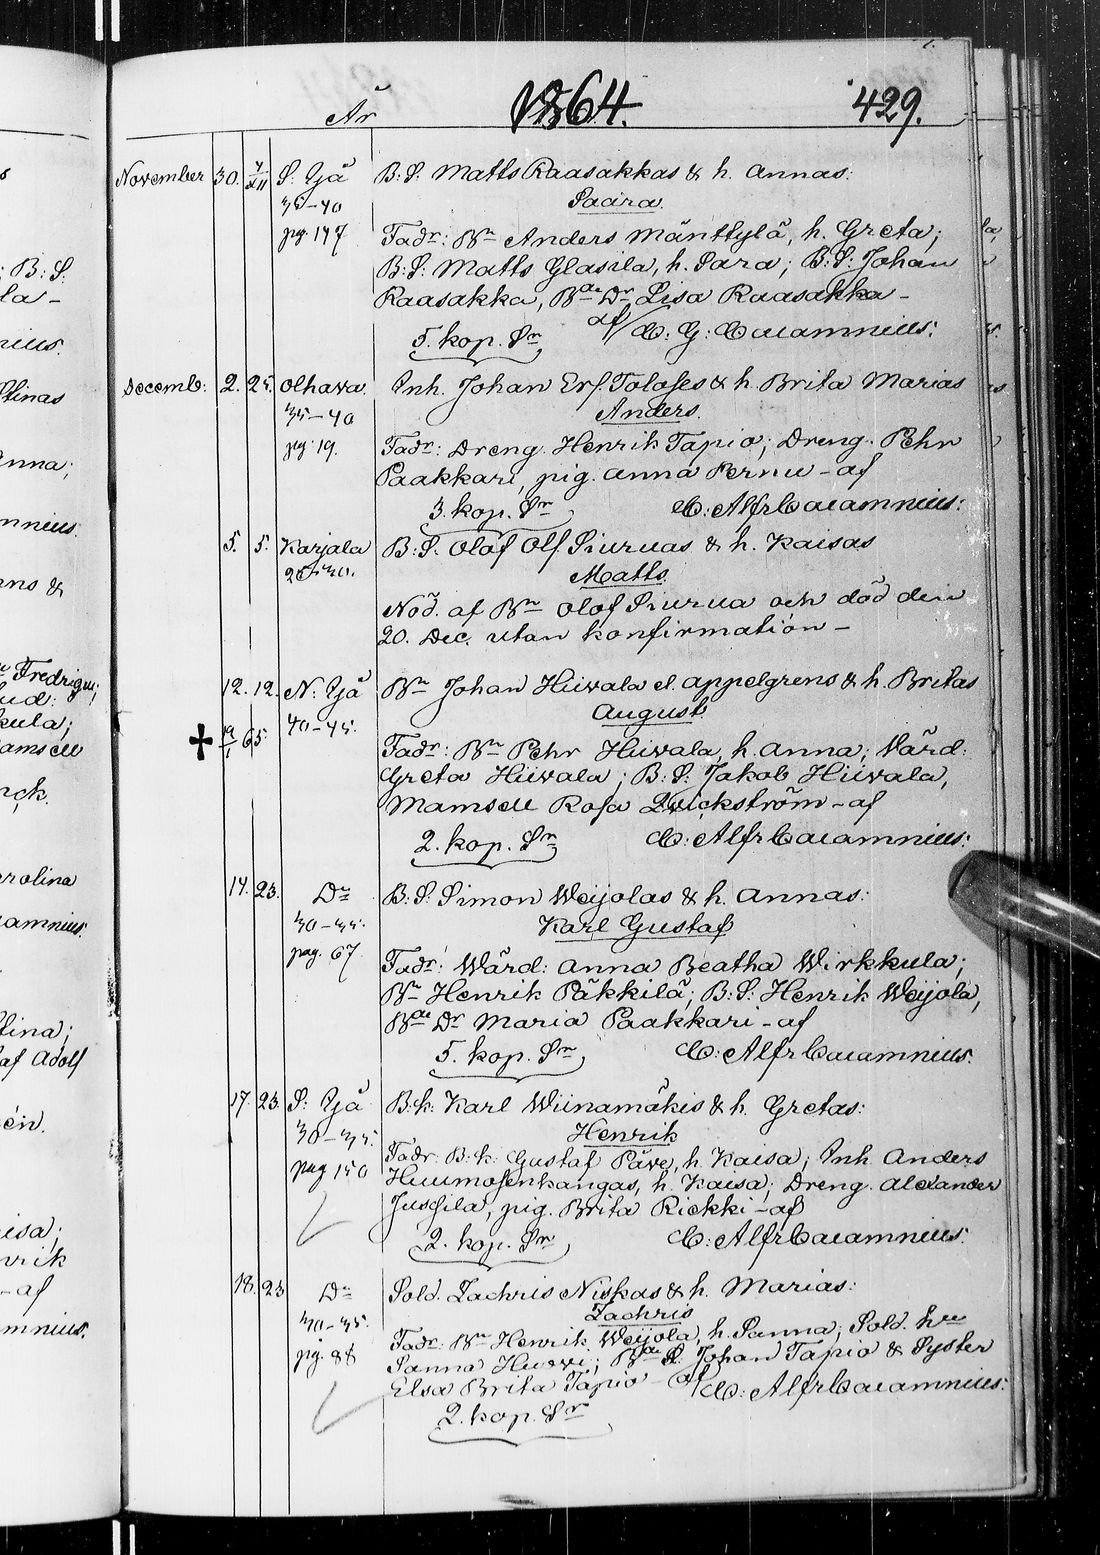 År 1864. 429.
November 30. 4/XII S. Ijå B: S. Matts Raasakkas & h. Annas:
35–40 Saara.
pg. 147 Fadr: Bn Anders Mänttylä, h. Greta;
B: S: Matts Glasila, h. Sara; B: S: Johan
Raasakka, Bde Dr Lisa Raasakka –
5. kop. Sr af C: G: Calamnius:
Decemb: 2. 25. Olhava. Inh. Johan Ers. Tolases & h. Brita Marias
35–40 Anders.
pg: 19. Fadr: Dreng Henrik Tapio; Dreng. Pehr
Paakkari, pig. Anna Pernu – af
3. kop. Sr C: Alfr Calamnius:
5. 5. Karjala B: S. Olof Olf Siuruas & h. Kaisas
25–30. Matts
Nöd. af Bn Olof Siurua och död den
20. Dec. utan konfirmation –
12. 12. N: Ijå Bn Johan Hiivala el. Appelgrens & h. Britas
40–45. August
19/1 65. Fadr: Bn Pehr Hiivala, h. Anna; Värd:
Greta Hiivala; B: S: Jakob Hiivala,
Mamsell Rosa Qvickström – af
2. kop. Sr C: Alfr Calamnius:
14. 23. Do B: S Simon Weijolas & h. Annas:
30–35: Karl Gustaf
pag. 67. Fadr: Wärd: Anna Beatha Wirkkula;
Bn Henrik Päkkilä; B: S: Henrik Weijola,
Bde Dr Maria Paakkari – af
5. kop. Sr C: Alfr Calamnius.
17. 23. S: Ijå B: k: Karl Wiinamäkis & h. Gretas:
30–35: Henrik
pag 150 Fadr: B: k: Gustaf Päve, h. Kaisa; Inh Anders
Huumosenkangas, h. Kaisa; Dreng. Alexander
Jussila, pig. Brita Riekki – af
2. kop. Sr C: Alfr Calamnius.
18. 23 Do Sold. Zachris Niskas & h. Marias:
30–35: Zachris
pg. 88 Fadr: Bn Henrik Weijola, h. Sanna; Sold. hru
Sanna Hurvi; Bde S. Johan Tapio & Syster
Elsa Brita Tapio – af C: Alfr Calamnius:
2. kop. Sr